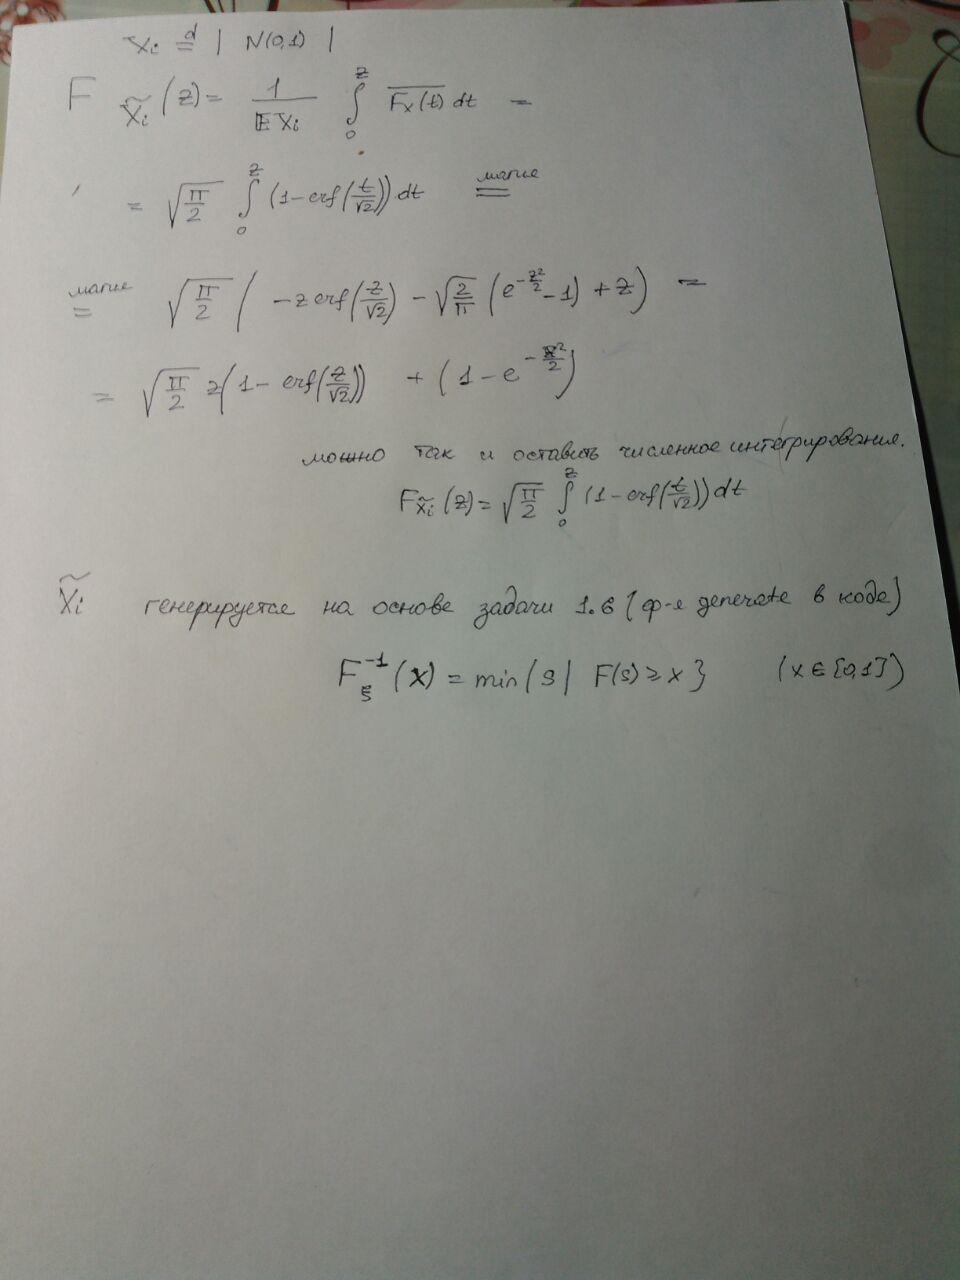 Xᵢ =ᵈ | N(0,1) |
F X̃ᵢ (z) = 1/(𝔼Xᵢ) ∫₀ᶻ F̅ₓ(t) dt =
= √(π/2) ∫₀ᶻ (1 - erf(t/√2)) dt =магия
магия = √(π/2) ( - z erf(z/√2) - √(2/π) (e^(-z²/2) - 1) + z ) =
= √(π/2) z(1 - erf(z/√2)) + (1 - e^(-z²/2))
можно так и оставить численное интегрирование.
F X̃ᵢ (z) = √(π/2) ∫₀ᶻ (1 - erf(t/√2)) dt
X̃ᵢ генерируется на основе задачи 1.6 (ф-я generate в коде)
F_ξ⁻¹ (x) = min{s | F(s) ≥ x} (x ∈ [0,1])